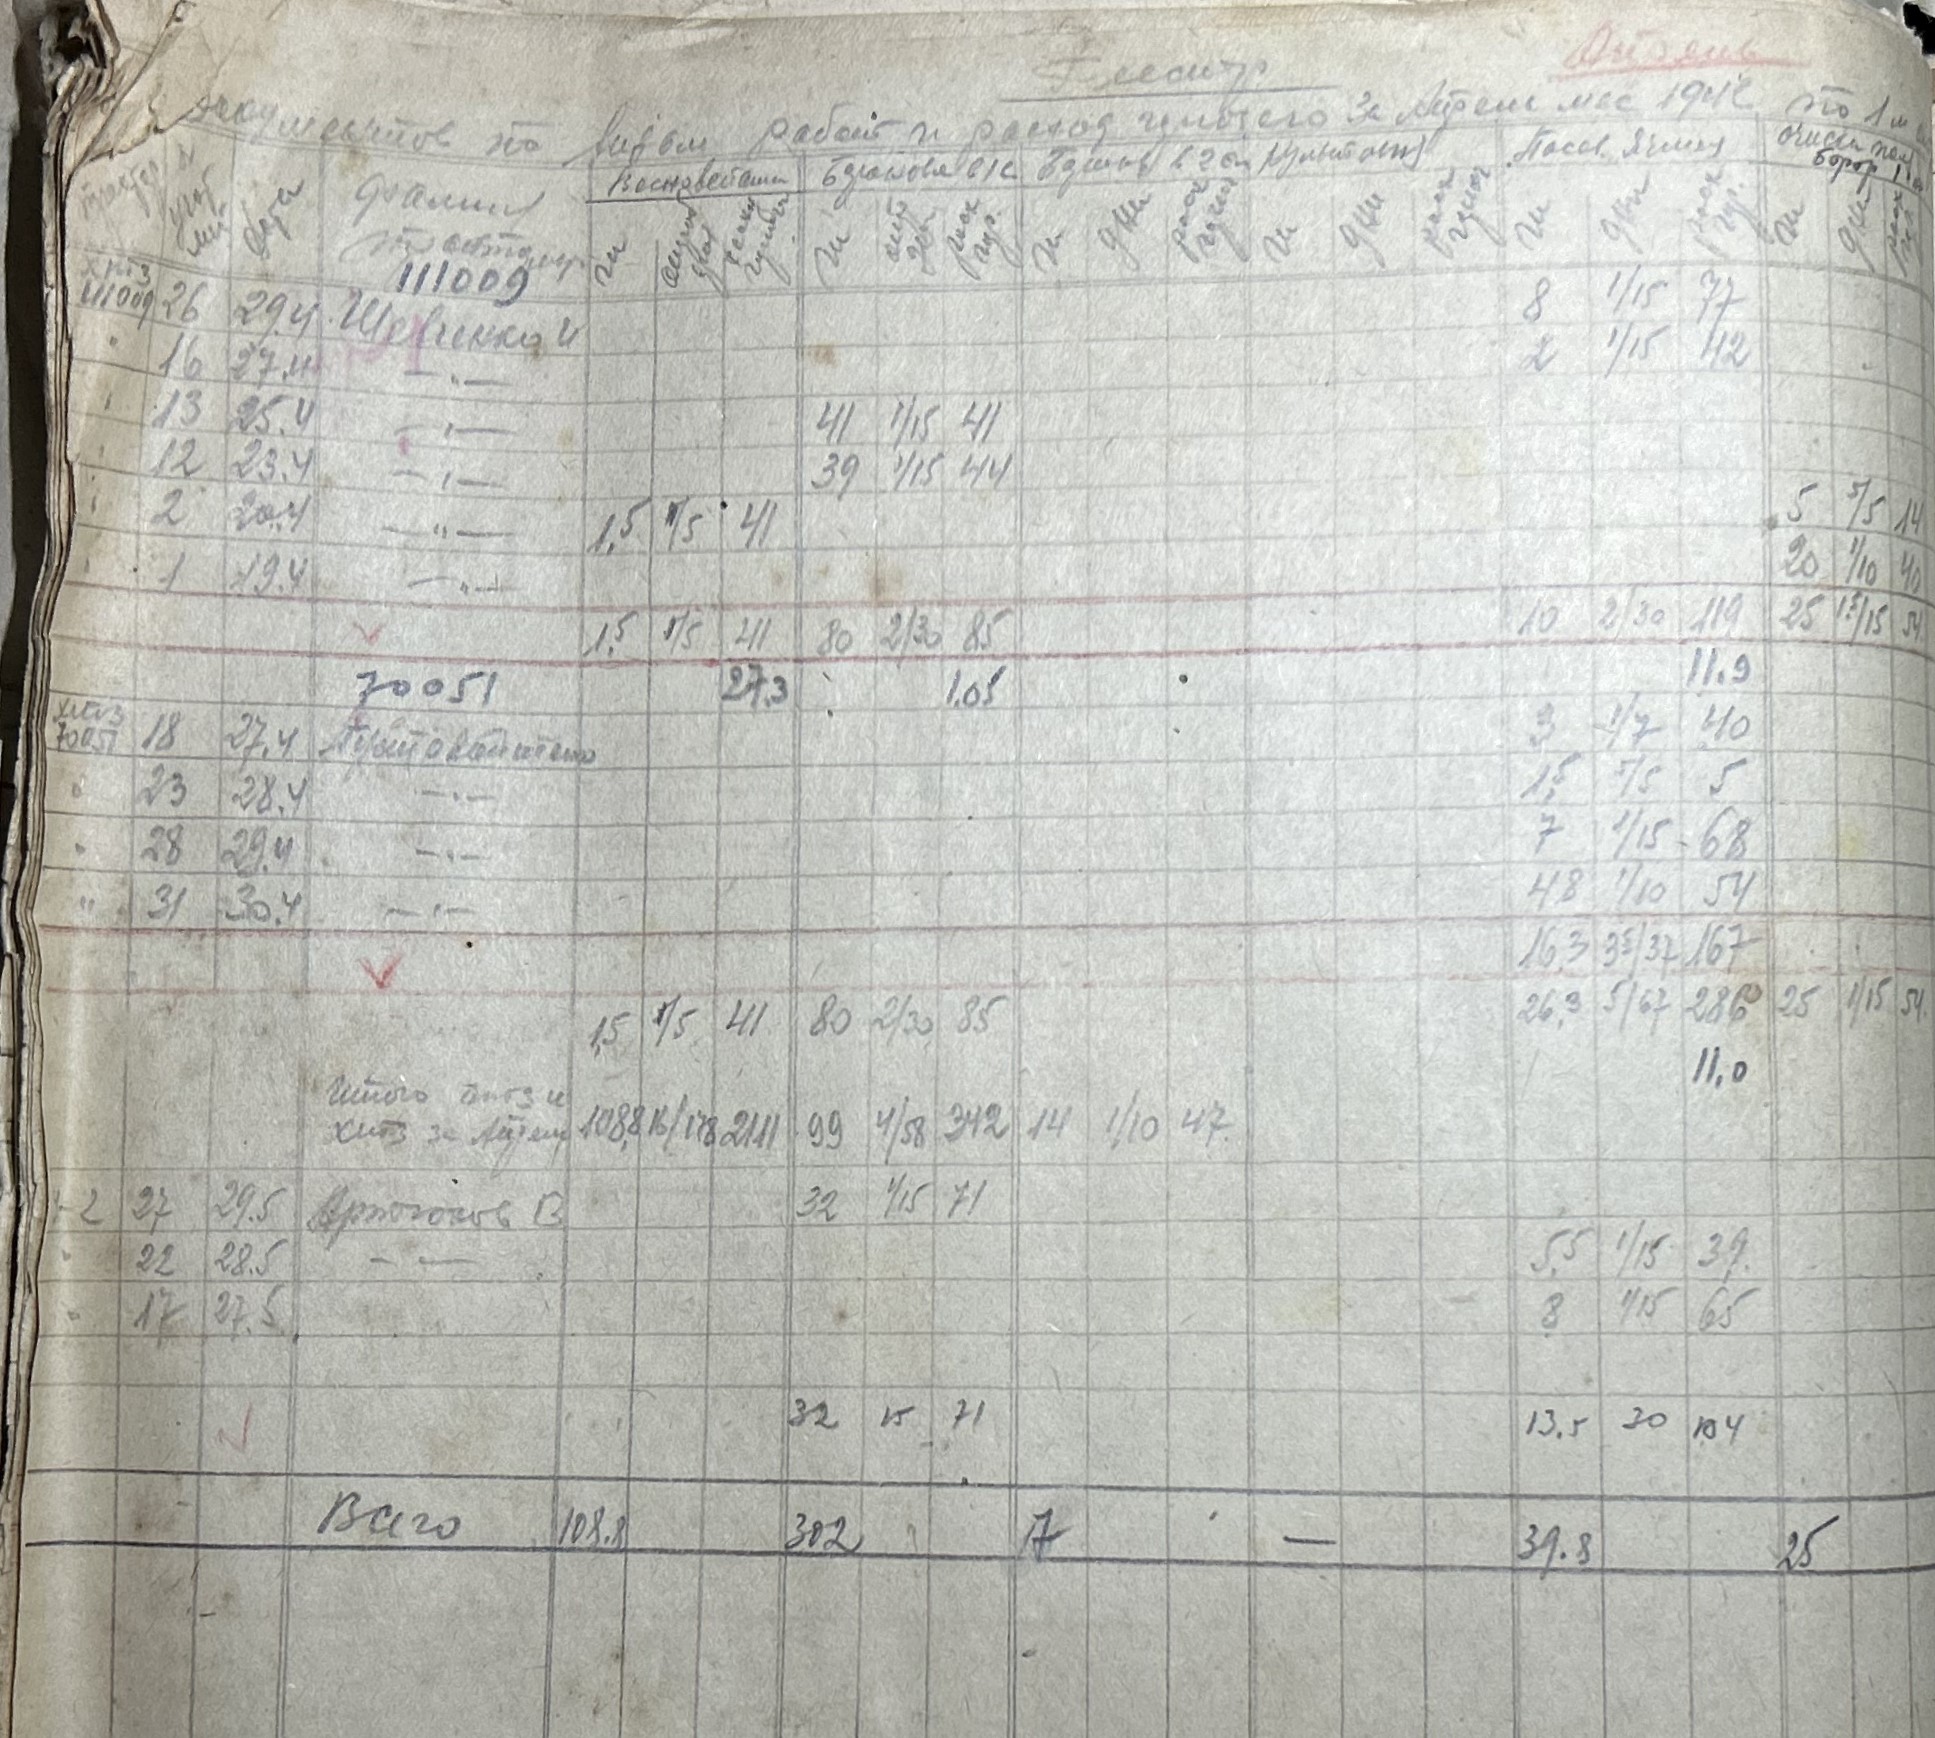 Реестр
Апрель
документов по видам работ и расход горючего за Апрель мес 1942 по 1 м
Весновспашка Бороновка в 1 с Боронов в 2 сл Культ Посев Ячменя очистка бор
Трактор № Дата Фамил
га га га дни га дни га дни га дни
111009
ХТЗ
111009 26 29.4 Шевченко И 8 1/15 77
" 16 27.4 —"— 2 1/15 42
" 13 25.4 —"— 41 1/15 41
" 12 23.4 —"— 39 1/15 44
" 2 20.4 —"— 1,5 5/5 41 5 5/5 14
" 1 19.4 —"— 20 1/10 40
1,5 5/5 41 80 2/30 85 10 2/30 119 25 15/15 54
70051 27.3 1.05 11.9
ХТЗ
70051 18 27.4 3 1/7 40
" 23 28.4 —"— 1,5 5/5 5
" 28 29.4 —"— 7 1/15 68
" 31 30.4 —"— 4.8 1/10 54
16.3 35/37 167
1,5 5/5 41 80 2/30 85 26,3 5/67 286 25 1/15 54
11,0
Итого
ХТЗ за Апрель 108,8 16/178 2111 99 4/58 342 14 1/10 47
2 27 29.5 В 32 1/15 71
" 22 28.5 — — 5,5 1/15 39
" 17 27.5 8 1/15 65
32 15 71 13.5 30 104
Всего 108.8 302 17 — 39.8 25